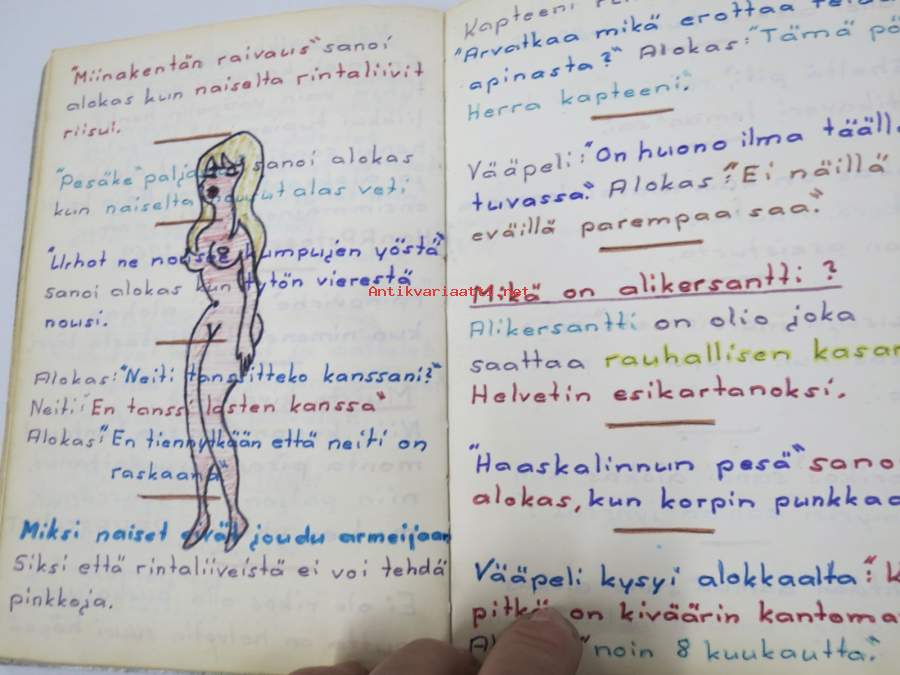 "Miinakentän raivaus" sanoi
alokas kun naiselta rintaliivit
riisui.
"Pesäke sanoi alokas
kun naiselta alas veti
"Urhot ne kumpujen yöstä"
sanoi alokas kun tytön vierestä
nousi.
Alokas: "Neiti tanssitteko kanssani?"
Neiti: "En tanssi lasten kanssa"
Alokas: "En tiennytkään että neiti on
raskaana"
Miksi naiset eivät joudu armeijaan
Siksi että rintaliiveistä ei voi tehdä
pinkkoja.
Kapteeni
"Arvatkaa mikä erottaa
apinasta?" Alokas: "Tämä
Herra kapteeni."
Vääpeli: "On huono ilma
tuvassa." Alokas: "Ei näillä
eväillä parempaa saa."
Mikä on alikersantti?
Alikersantti on olio joka
saattaa rauhallisen
Helvetin esikartanoksi.
"Haaskalinnun pesä"
alokas, kun korpin
Vääpeli kysyi alokkaalta: "
pitkä on kiväärin
"noin 8 kuukautta."
Antikvariaatti.net